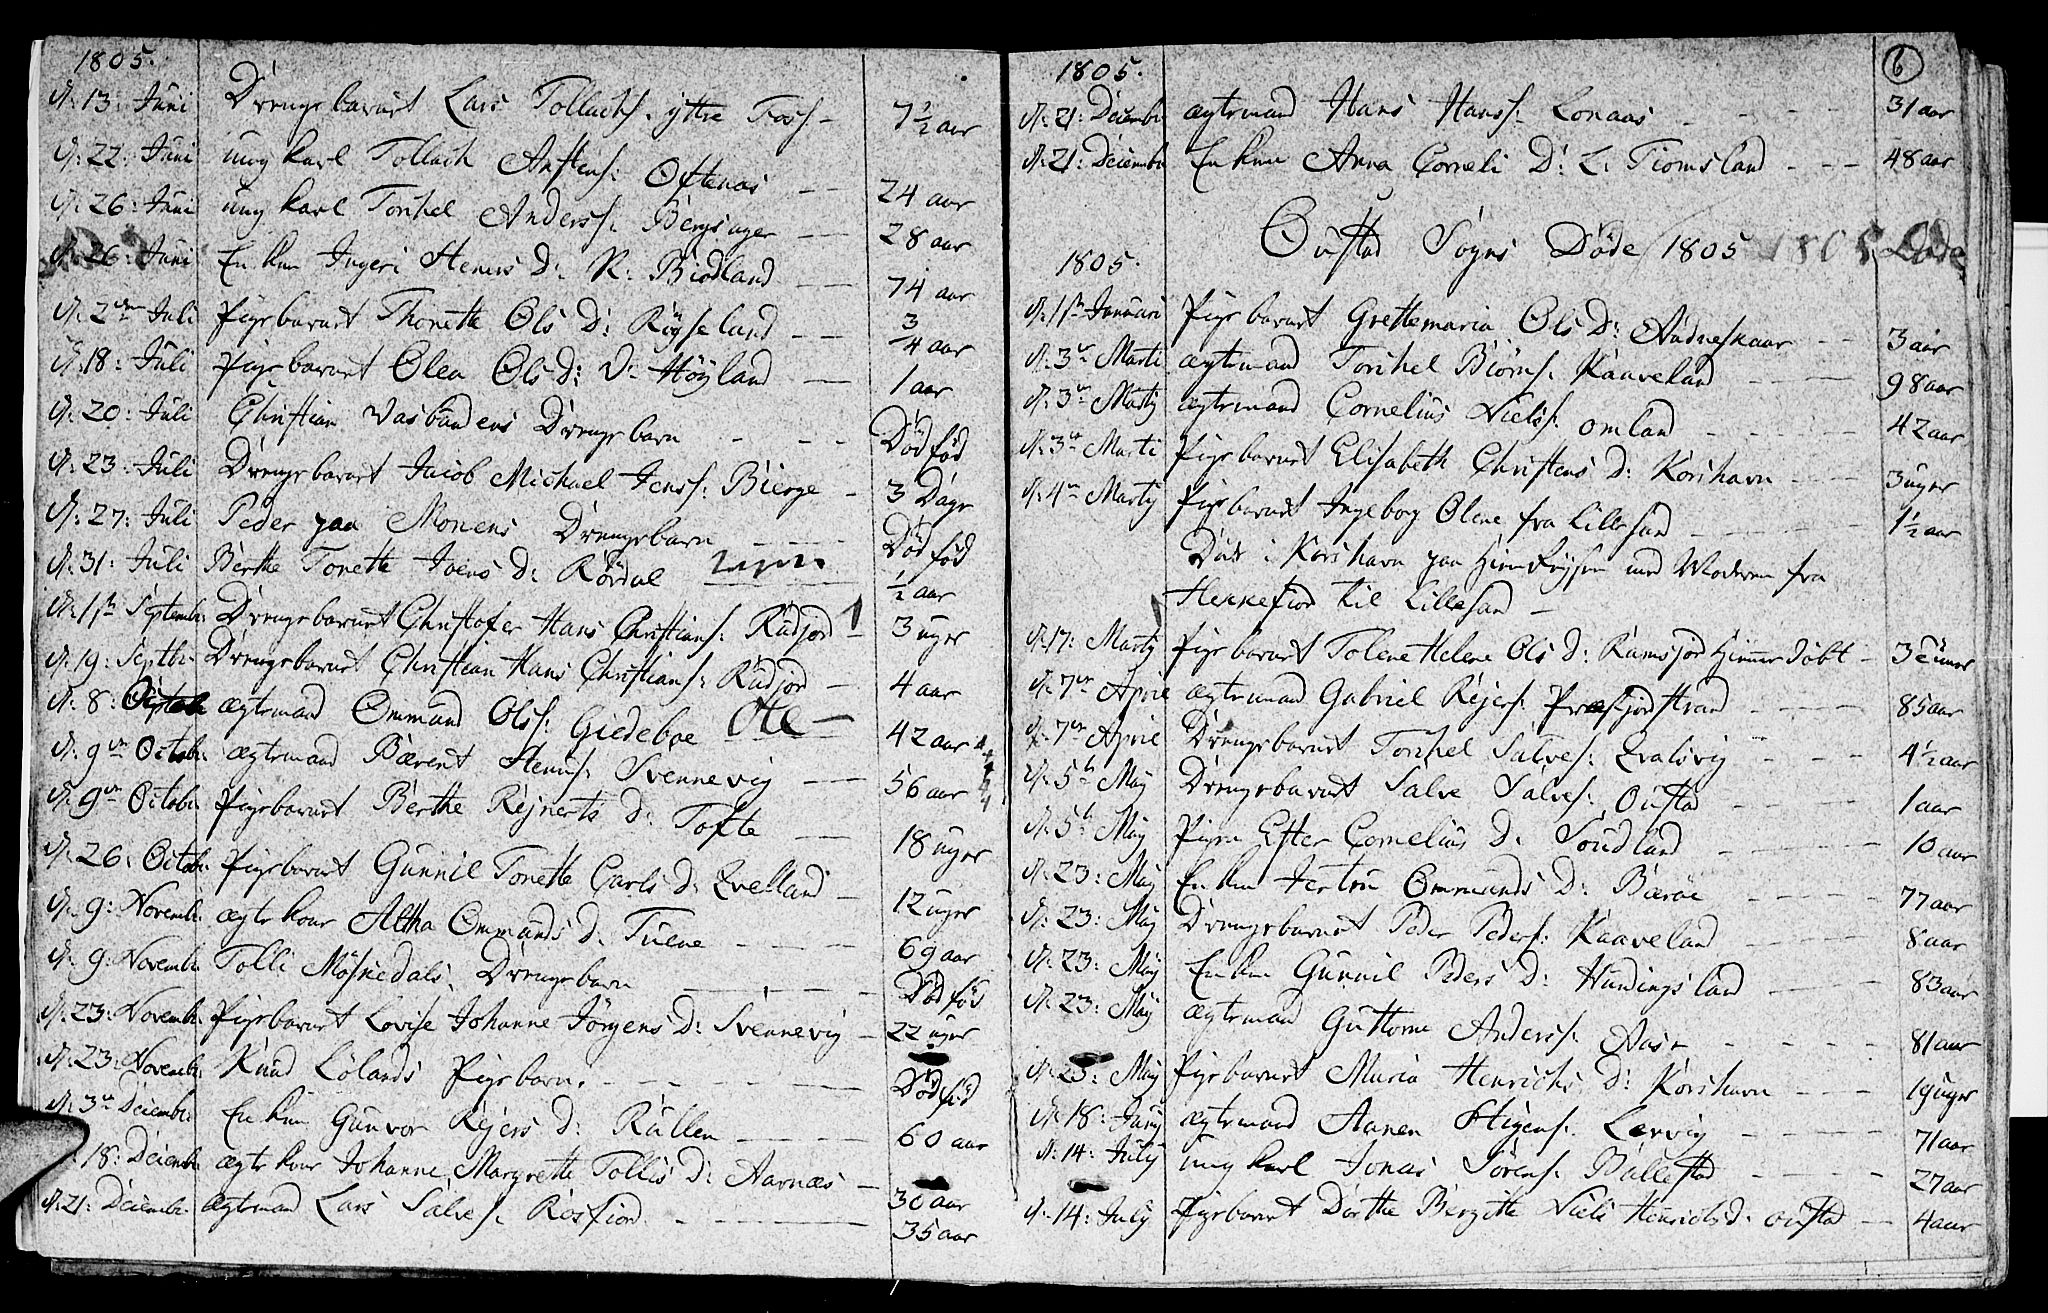 1805.
N: 13: Juni Drengebarnet Lars Tollachs. ytre Foss — 7 1/2 aar
N: 22: Juni ung karl Tollach Anstens: Oftenæs — — 24 aar
N: 26: Juni ung karl Torkel Anderss: Bergsager — — 28 aar
N: 26: Juni Enken Ingeri Stenes D: N: Biodland — — 74 aar
N: 2den Juli Pigebarnet Thonette Ols D: Röysland — — 3/4 aar
N: 18: Juli Pigebarnet Olea Ols D: V: Höyland — 1 aar
N: 20: Juli Christian Vasbundens Drengebarn - - - Død fød
N: 23: Juli Drengebarnet Jacob Michael Jenss: Bierge - 3 Dage
N: 27: Juli Peder paa Monens Drengebarn - - - Død fød
N: 31: Juli Berthe Tonette Joens D: Rördal 1/2 aar
N: 11te Septembr. Drengebarnet Christofer Hans Christians: Rudjord — 3 uger
N: 19: Septbr. Drengebarnet Christian Hans Christians: Rudjord — 4 aar
N: 8: Octobr ægtemand Ommund Ols: Giedeboe Ole — 42 aar
N: 9de Octobr. ægtemand Bærent Stenss: Svennevig — — 56 aar
N: 9de Octobr Pigebarnet Berthe Rejnerts D: Tofte — — 18 uger
N: 26: Octobr. Pigebarnet Gunnil Tonette Carls D: Qvelland — 12 uger
N: 9: Novembr. ægte kone Altha Ommunds D: Tuene - - - 69 aar
N: 9: Novembr. Tolli Mösnedals. Drengebarn - - - Død fød
N: 23: Novembr. Pigebarnet Lovise Johanne Jörgens D: Svennevig — 22 uger
N: 23: Novembr. Knud Lölands Pigebarn. - - - Død fød
N: 3de Decembr. Enken Gunvor Rejers D: Rullen - - - 60 aar
18: Decembr. ægte kone Johanne Margrette Tollis D: Aarnæs — 30 aar
N: 21: Decembr. ægtemand Lars Salves: Rosfiord - - - 35 aar
6
1805.
N: 21: Decembr ægtemand Hans Hanss: Lonaas - - - 31 aar
N: 21: Decembr Enken Anna Corneli D: L: Fiomsland - - - 48 aar
Oustad Sogns Døde 1805 1805 Døde
1805.
N: 11te Januari Pigebarnet Grettemaria Ols D: Audneskaar - - 3 aar
N: 3de Marti ægtemand Torkel Biörns: Kaaveland - - - 98 aar
N: 3de Martij ægtemand Cornelius Nielss. Omland - - - 42 aar
N: 3de Marti Pigebarnet Elisabeth Christens D: Korshavn - - - 3 uger
N: 4de Martij Pigebarnet Ingeborg Olene fra Lillesand - - - 1 1/2 aar
Døde i Korshavn paa Hiemreysen med Moderen fra
Hekkefiord til Lillesand —
N: 17: Martij Pigebarnet Tolene Helene Ols D: Ramsjor Himme døbt -
N: 7de April ægtemand Gabriel Rejers: Præstjordstrand - - - 85 aar
N: 7de April Drengebarnet Torkel Salves: Qvalsvig - - - 4 1/2 aar
N: 5te May Drengebarnet Salve Salves: Oustad - - - 1 aar
N: 5te May Pigen Ester Cornelius D: Sondland - - - 10 aar
N: 23: May Enken Jertru Ommunds D: Bærøe - - - 77 aar
N: 23: May Drengebarnet Peder Peders: Kaaveland - - - 8 aar
N: 23: May Enken Gunnil Peders D: Hundingsland - - - 83 aar
N: 23: May ægtemand Guttorm Anderss: Aase - - - 81 aar
N: 23: May Pigebarnet Maria Henrichs D: Korshavn - - - 19 uger
N: 18: Juny ægtemand Aanen Stigens: Lervig - - - 71 aar
N: 14: July ung karl Jonas Sörens: Ballestad - - - 27 aar
N: 14: July Pigebarnet Dorthe Birgitte Niels Henrichs D: Oustad — 4 aar